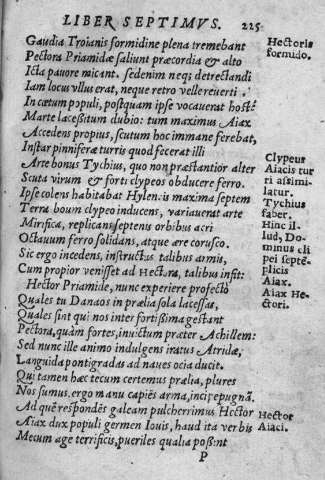 LIBER SEPTIMVS. 225
Gaudia Troianis formidine plena tremebant
Pectora Priamidæ saliunt præcordia & alto
Icta pauore micant. sedenim neq; detrectandi
Iam locus vllus erat, neque retro velle reuerti
In cœtum populi, postquam ipse vocauerat hostē
Marte lacessitum dubio: tum maximus Aiax
Accedens propius, scutum hoc immane ferebat,
Instar pinniferæ turris quod fecerat illi
Arte bonus Tychius, quo non præstantior alter
Scuta virum & forti clypeos obducere ferro.
Ipse colens habitabat Hylen: is maxima septem
Terga boum clypeo inducens, variauerat arte
Mirifica, replicans septenis orbibus acri
Octauum ferro solidans, atque ære corusco.
Sic ergo incedens, instructus talibus armis,
Cum propior venisset ad Hectora, talibus insit:
Hector Priamide, nunc experiere profecto
Quales tu Danaos in prælia sola lacessas,
Quales sint qui nos inter fortissima gestant
Pectora, quàm fortes, inuictum præter Achillem:
Sed nunc ille animo indulgens iratus Atridæ,
Languida pontigradas ad naues ocia ducit.
Qui tamen hæc tecum certemus prælia, plures
Nos sumus. ergo manu capiēs arma, incipe pugnā.
Ad quē respondēs galeam pulcherrimus Hector
Aiax dux populi germen Iouis, haud ita verbis
Mecum age terrificis, pueriles qualia possint
P
Hectoris
formido.
Clypeus
Aiacis tur
ri assimi-
latur.
Tychius
faber.
Hinc il-
lud, Do-
minus cli
pei septē-
plicis
Aiax.
Aiax He-
ctori.
Hector
Aiaci.